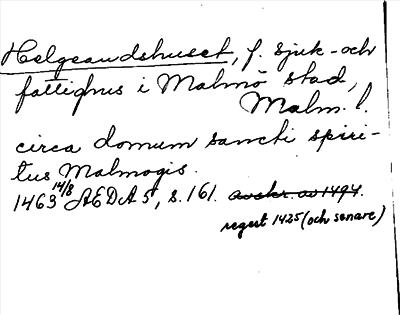 Helgeandshuset, f. sjuk- och
fattighus i Malmö stad,
Malm. l.
circa domum sancti spiri-
tus Malmogis.
1463 14/8 ÆDA 5, s. 161. avskr. av 1494.
regest 1425 (och senare)